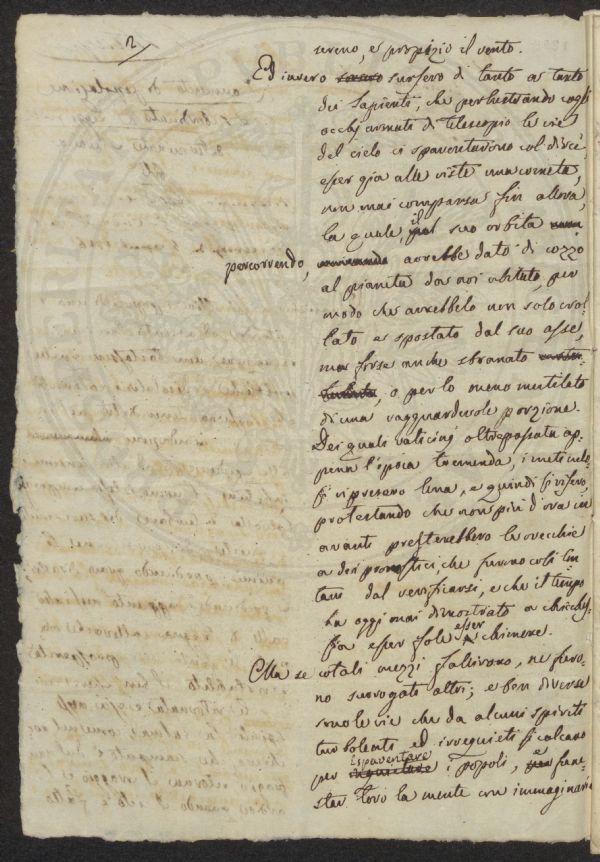 2/
sereno, e propizio il vento.
Ed invero sursero di tanto a tanto
dei Sapienti, che perlustrando cogli
occhj armati di telescopio le vie
del cielo ci spaventarono col dirci
esser già alle viste una cometa,
non mai comparsa fin allora,
la quale, il suo orbita
percorrendo, avrebbe dato di cozzo
al pianeta da noi abitato, per
modo che avrebbelo non solo crol-
lato e spostato dal suo asse,
ma forse anche sbranato
o per lo meno mutilato
di una ragguardevole porzione.
Dei quali vaticinj oltrepassata ap-
pena l'epoca tremenda, i meticulo-
si ripresero lena, e quindi si risero,
protestando che non più d'ora in
avanti presterebbero le orecchie
a dei pronostici, che furono così lon-
tani dal verificarsi, e che il tempo
ha oggi mai dimostrato a chicches-
sia esser fole esser chimere.
Ma se cotali mezzi fallirono, ne furo-
no surrogati altri; e ben diverse
sono le vie che da alcuni spiriti
turbolenti ed irrequieti si calcano
per Espaventare i Popoli, e fune-
star loro la mente con immaginarie